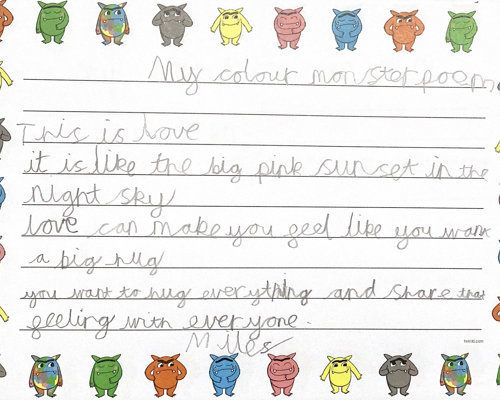 My colour monster poem
This is love
it is like the big pink sunset in the
night sky
love can make you feel like you want
a big hug
you want to hug everything and share that
feeling with everyone.
Miles